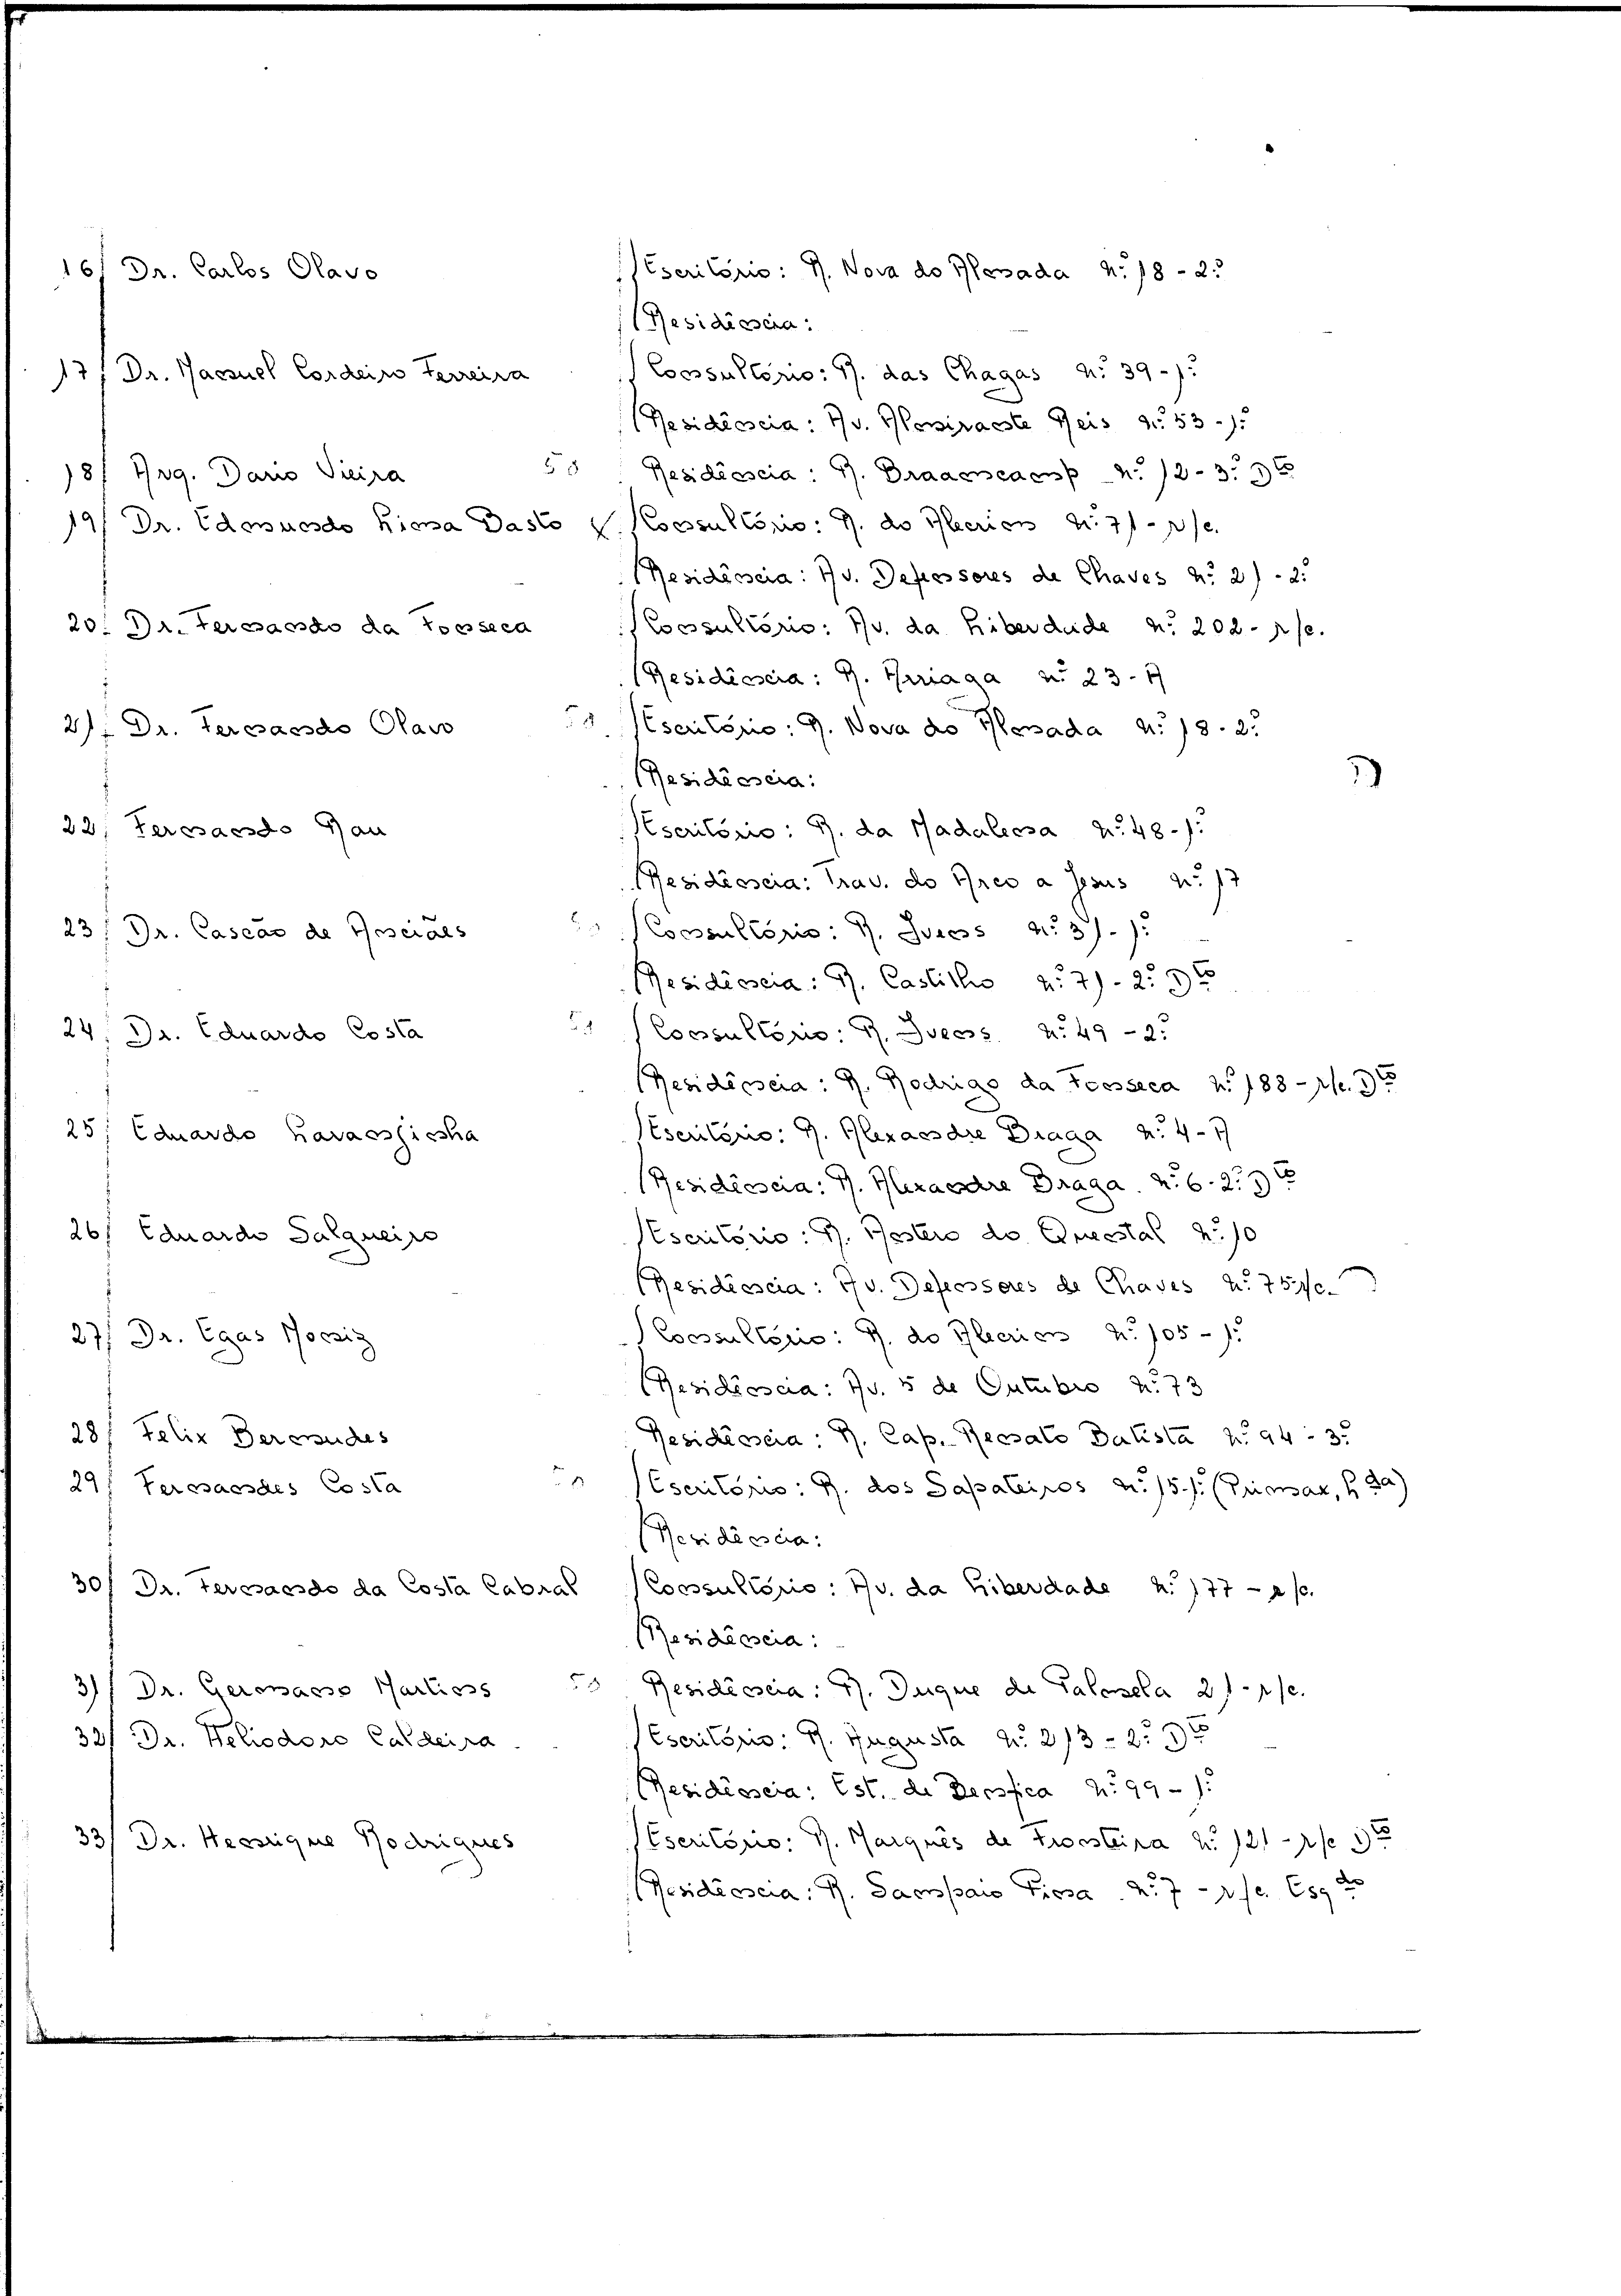 16/ Dr. Carlos Olavo (Escritório: R. Nova do Almada n.º 18 - 2.º
(Residência:
17/ Dr. Manuel Cordeiro Ferreira (Consultório: R. das Chagas n.º 39 - 1.º
(Residência: Av. Almirante Reis n.º 53 - 1.º
18/ Arq. Dario Vieira 50 Residência: R. Braamcamp n.º 12 - 3.º Dto
19/ Dr. Edmundo Lima Basto (Consultório: R. do Alecrim n.º 71 - r/c.
(Residência: Av. Defensores de Chaves n.º 21 - 2.º
20/ Dr. Fernando da Fonseca (Consultório: Av. da Liberdade n.º 202 - r/c.
(Residência: R. Arriaga n.º 23 - A
21/ Dr. Fernando Olavo (Escritório: R. Nova do Almada n.º 18 - 2.º
(Residência:
22/ Fernando Rau (Escritório: R. da Madalena n.º 48 - 1.º
(Residência: Trav. do Arco a Jesus n.º 17
23/ Dr. Cascão de Anciães (Consultório: R. Ivens n.º 31 - 1.º
(Residência: R. Castilho n.º 71 - 2.º Dto
24/ Dr. Eduardo Costa (Consultório: R. Ivens n.º 49 - 2.º
(Residência: R. Rodrigo da Fonseca n.º 188 - r/c. Dto
25/ Eduardo Laranjinha (Escritório: R. Alexandre Braga n.º 4 - A
(Residência: R. Alexandre Braga n.º 6 - 2.º Dto
26/ Eduardo Salgueiro (Escritório: R. Antero do Quental n.º 10
(Residência: Av. Defensores de Chaves n.º 75 r/c.
27/ Dr. Egas Moniz (Consultório: R. do Alecrim n.º 105 - 1.º
(Residência: Av. 5 de Outubro n.º 73
28/ Felix Bermudes Residência: R. Cap. Renato Batista n.º 94 - 3.º
29/ Fernandes Costa (Escritório: R. dos Sapateiros n.º 15 - 1.º (Primax, Lda)
(Residência:
30/ Dr. Fernando da Costa Cabral (Consultório: Av. da Liberdade n.º 177 - r/c.
(Residência:
31/ Dr. Germano Martins 50 Residência: R. Duque de Palmela 21 - r/c.
32/ Dr. Heliodoro Caldeira (Escritório: R. Augusta n.º 213 - 2.º Dto
(Residência: Est. de Benfica n.º 99 - 1.º
33/ Dr. Henrique Rodrigues (Escritório: R. Marquês de Fronteira n.º 121 - r/c Dto
(Residência: R. Sampaio Pina n.º 7 - r/c. Esqdo